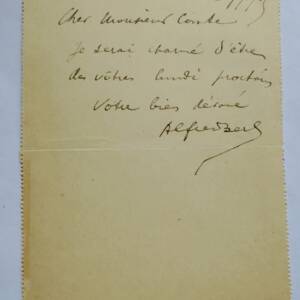 Cher Monsieur Comte
Je serai charmé d'être
des vôtres lundi prochain
Votre bien dévoué